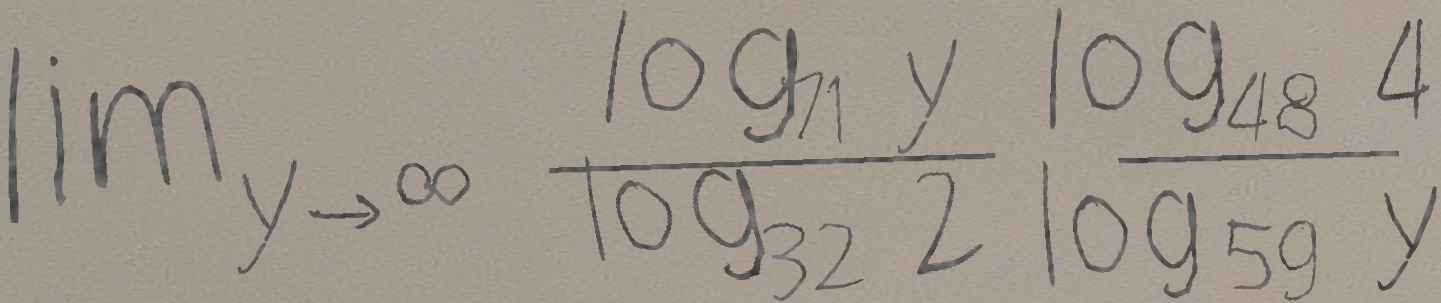 \lim_{y \to \infty} \frac{\log_{71} y}{\log_{32} 2} \frac{\log_{48} 4}{\log_{59} y}